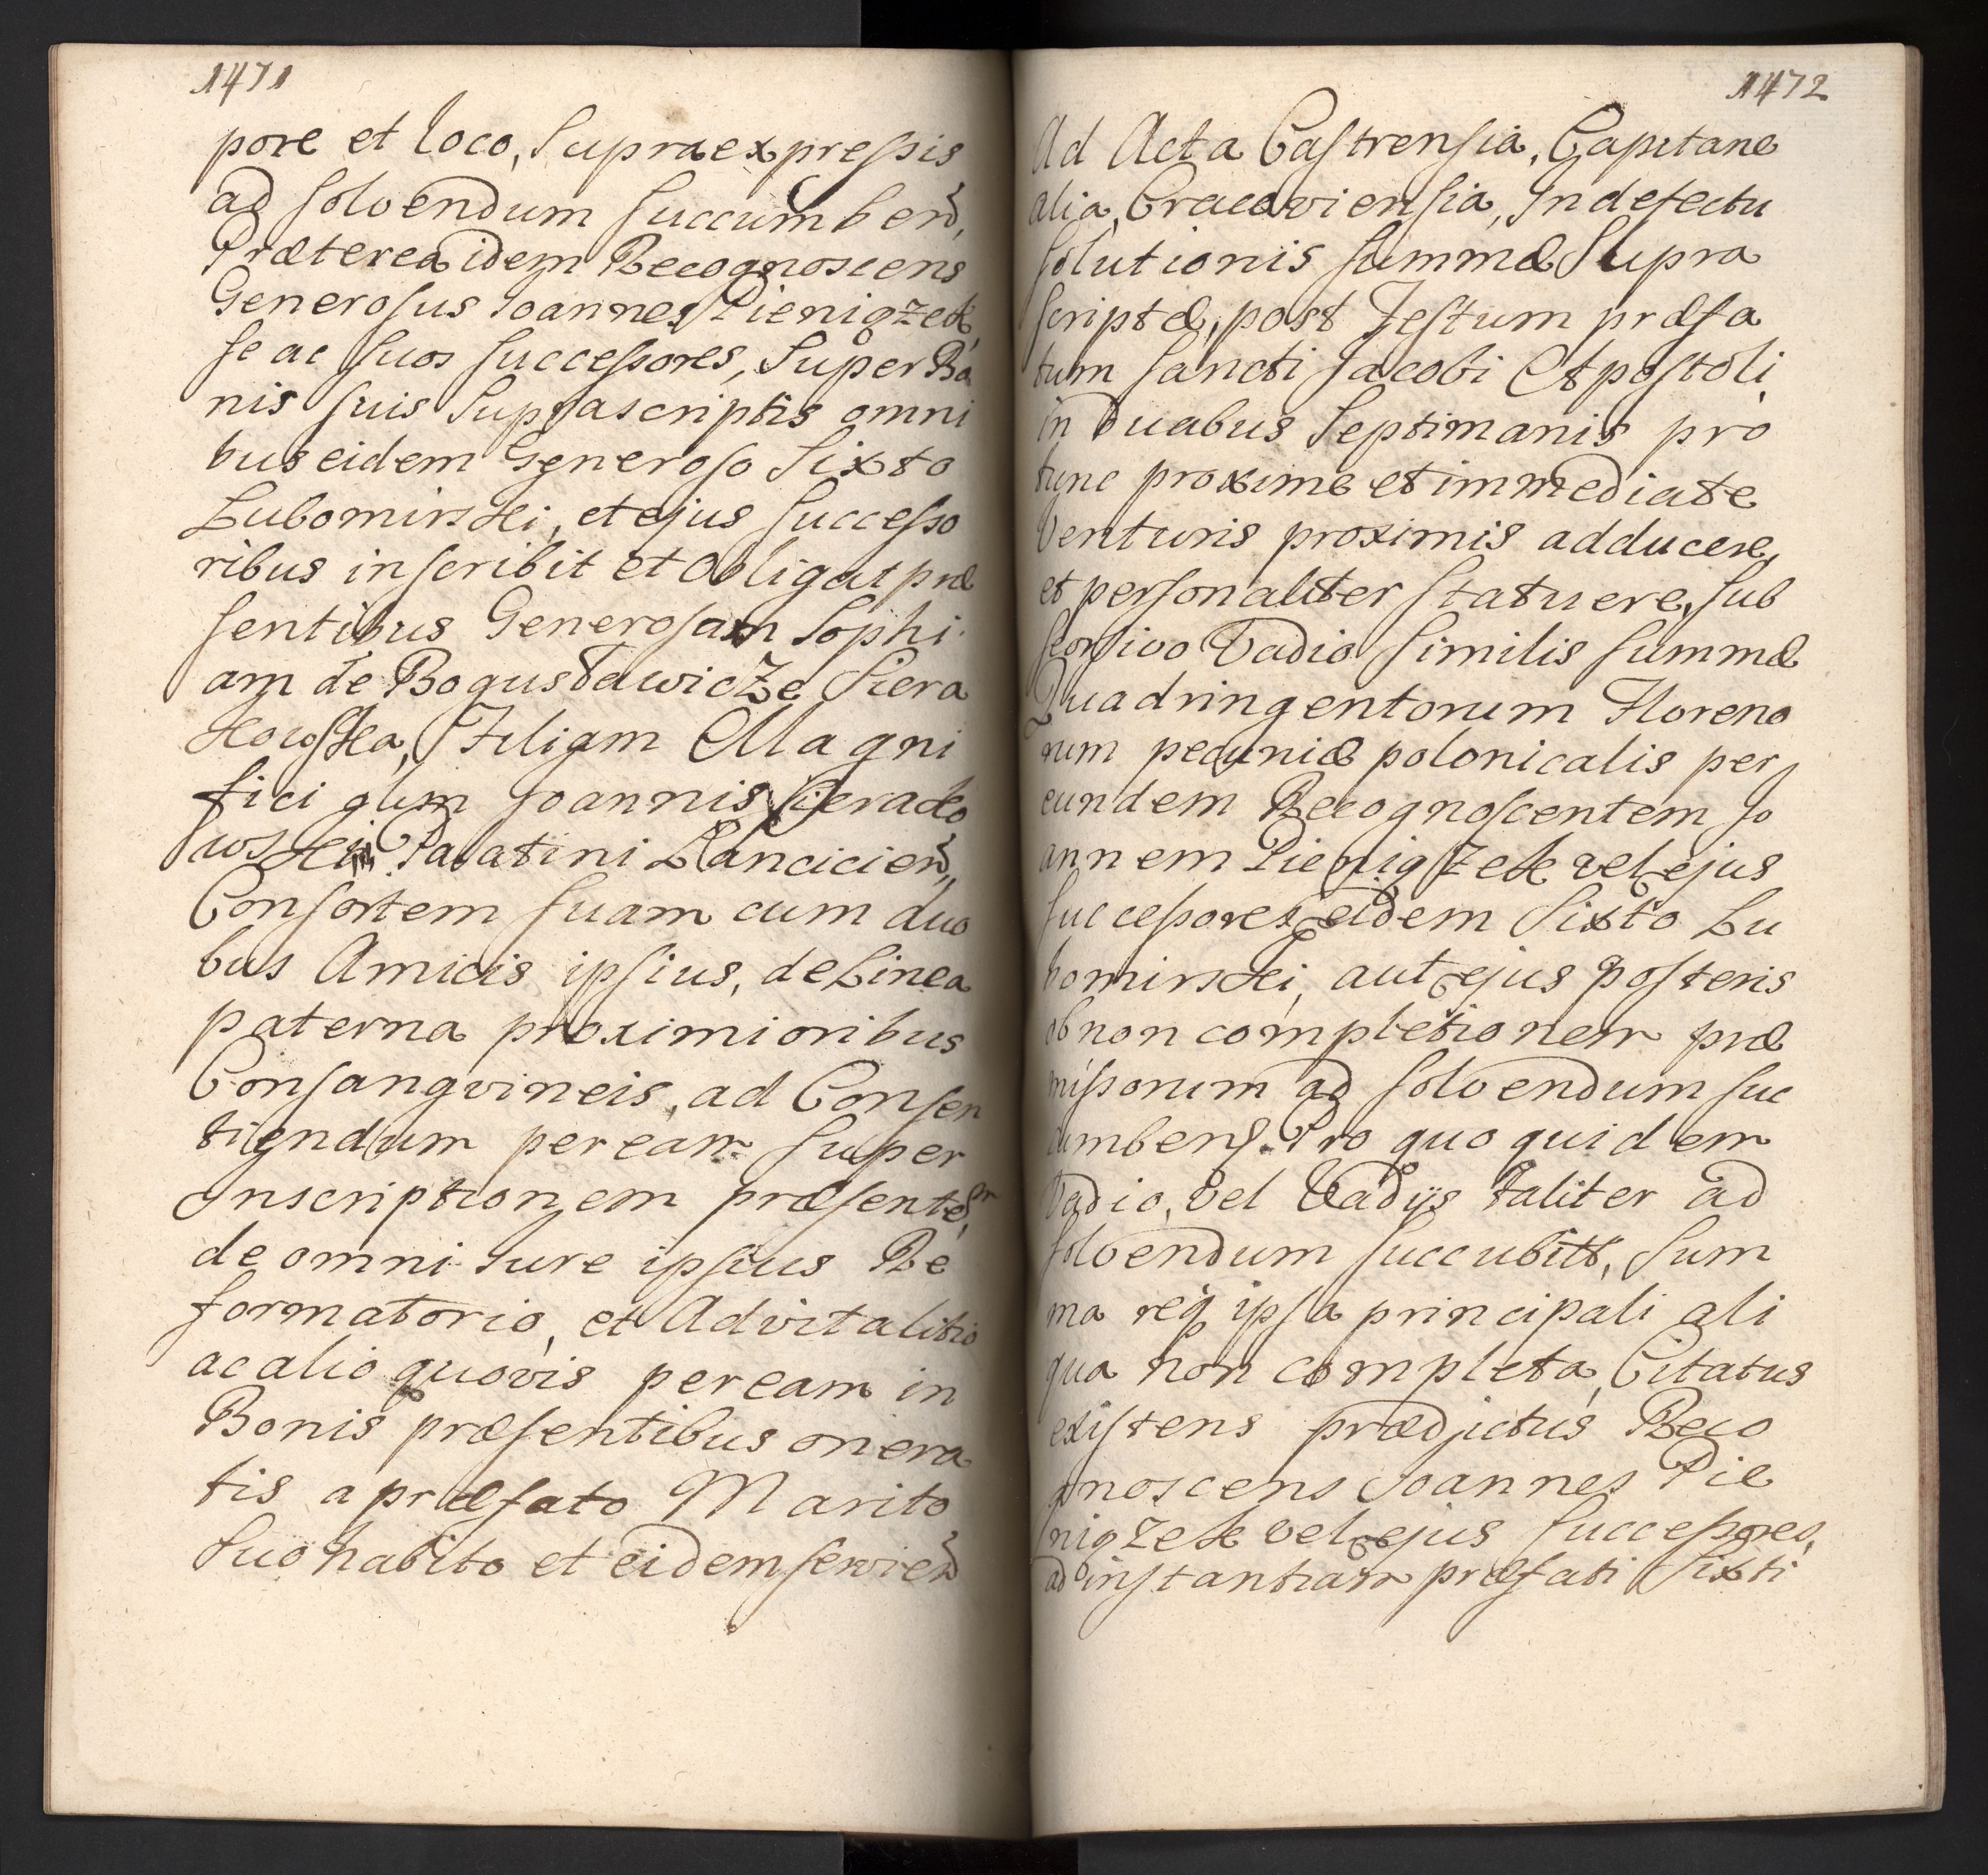 1471
pore et loco, Supraexpressis
ad solvendum succumbend,
Præterea idem Recognoscens
Generosus Joannes Pieniążek
se ac suos successores, Super Bo
nis suis Suprascriptis omni
bus eidem Generoso Sixto
Lubomirski, et ejus successo
ribus inscribit et Obligat præ
sentibus Generosam Sophi
am de Bogusławicze Siera
kowska, Filiam Magni
fici olim Joannis Sierako
wski Palatini Lancicien,
Consortem suam cum duo
bus Amicis ipsius, de Linea
paterna proximioribus
Consangvineis, ad Consen
tiendum per eam super
Inscriptionem præsentem,
de omni Jure ipsius Re
formatorio, et Advitalitio
ac alio quovis per eam in
Bonis præsentibus onera
tis a præfato Marito
Suo habito et eidem servien
1472
Ad Acta Castrensia, Capitane
alia, Cracoviensia, In defectu
solutionis summæ Supra
scriptæ, post Festum præfa
tum Sancti Jacobi Apostoli
in duabus Septimanis pro
tunc proxime et immediate
venturis proximis adducere,
et personaliter statuere, sub
seorsivo Vadio similis summæ
Quadringentorum Floreno
rum pecuniæ polonicalis per
eundem Recognoscentem Jo
annem Pieniążek vel ejus
successores eidem Sixto Lu
bomirski, aut ejus posteris
ob non completionem præ
missorum ad solvendum suc
cumbens. Pro quo quidem
Vadio, vel Vadijs taliter ad
solvendum succubitt, Sum
ma req ipsa principali ali
qua non completa, Citatus
existens prædictus Reco
gnoscens Joannes Pie
niązek vel ejus successores,
ad instantiam præfati Sixti